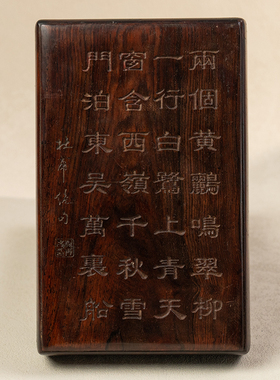 兩個黄鸝鳴翠柳
一行白鷺上青天
窗含西嶺千秋雪
門泊東吴萬裏船
杜甫绝句